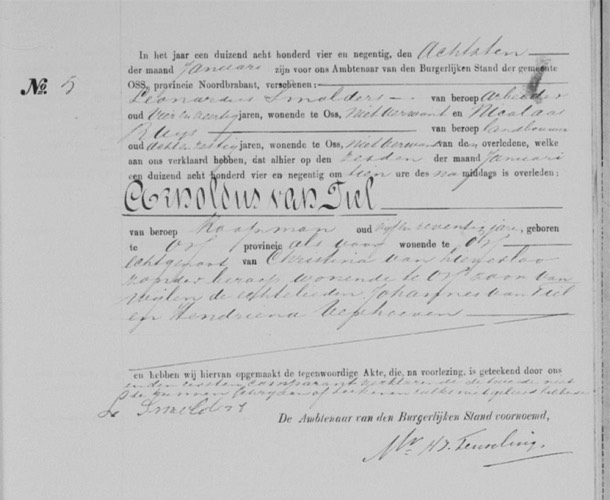 In het jaar een duizend acht honderd vier en negentig, den Achtsten
der maand Januari zijn voor ons Ambtenaar van den Burgerlijken Stand der gemeente
No. 5 OSS, provincie Noordbrabant, verschenen:
Leonardus Smolders van beroep Arbeider
oud Vier en veertig jaren, wonende te Oss, Niet Verwant en Nicolaas
Ruijs van beroep landbouwer
oud jaren, wonende te Oss, Niet Verwant van den overledene, welke
aan ons verklaard hebben, dat alhier op den zesden der maand Januari
een duizend acht honderd vier en negentig om tien ure des na middags is overleden:
Arnoldus van Tiel
van beroep Koopman oud jaren, geboren
te Oss provincie als voor wonende te Oss
echtgenoot van Christina van
zonder beroep wonende te Oss zoon van
wijlen de echtelieden Johannes van Tiel
en Hendriena Verhoeven
en hebben wij hiervan opgemaakt de tegenwoordige Akte, die, na voorlezing, is geteekend door ons
en den eersten comparant verklarende de tweede niet
te kunnen schrijven of teekenen
L Smolders
De Ambtenaar van den Burgerlijken Stand voornoemd,